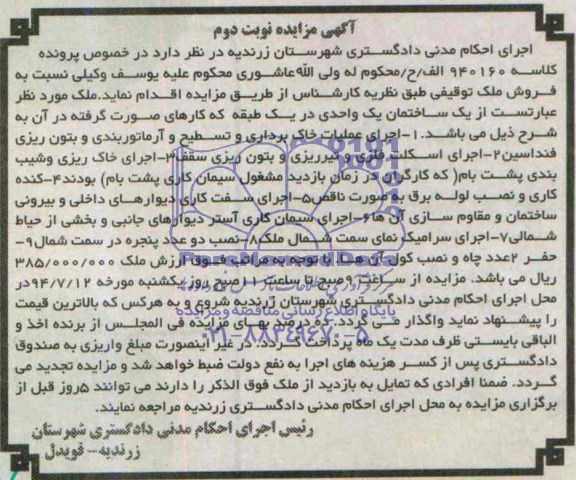 آگهی مزایده نوبت دوم
اجرای احکام مدنی دادگستری شهرستان زرندیه در نظر دارد در خصوص پرونده
کلاسه ۹۴۰۱۶۰ الف/ح/محکوم له ولی الله عاشوری محکوم علیه یوسف وکیلی نسبت به
فروش ملک توقیفی طبق نظریه کارشناس از طریق مزایده اقدام نماید.ملک مورد نظر
عبارتست از یک ساختمان یک واحدی در یک طبقه که کارهای صورت گرفته در آن به
شرح ذیل می باشد.۱-اجرای عملیات خاک برداری و تسطیح و آرماتوربندی و بتون ریزی
فنداسین۲-اجرای اسکلت فلزی و تیرریزی و بتون ریزی سقف۳-اجرای خاک ریزی وشیب
بندی پشت بام( که کارگران در زمان بازدید مشغول سیمان کاری پشت بام) بودند۴-کنده
کاری و نصب لوله برق به صورت ناقص۵-اجرای سفت کاری دیوارهای داخلی و بیرونی
ساختمان و مقاوم سازی آن ها۶-اجرای سیمان کاری آستر دیوارهای جانبی و بخشی از حیاط
شمالی۷-اجرای سرامیک نمای سمت شمال ملک۸-نصب دو عدد پنجره در سمت شمال۹-
حفر ۲عدد چاه و نصب کول آن ها. با توجه به مراتب فوق ارزش ملک ۳۸۵/۰۰۰/۰۰۰
ریال می باشد. مزایده از ساعت ۹صبح تا ساعت ۱۱صبح روز یکشنبه مورخه ۹۴/۷/۱۲در
محل اجرای احکام مدنی دادگستری شهرستان زرندیه شروع و به هرکس که بالاترین قیمت
را پیشنهاد نماید واگذار می گردد. ده درصد بهای مزایده فی المجلس از برنده اخذ و
الباقی بایستی ظرف مدت یک ماه پرداخت گردد. در غیر اینصورت مبلغ واریزی به صندوق
دادگستری پس از کسر هزینه های اجرا به نفع دولت ضبط خواهد شد و مزایده تجدید می
گردد. ضمنا افرادی که تمایل به بازدید از ملک فوق الذکر را دارند می توانند ۵روز قبل از
برگزاری مزایده به محل اجرای احکام مدنی دادگستری زرندیه مراجعه نمایند.
رئیس اجرای احکام مدنی دادگستری شهرستان
زرندیه- قویدل
پایگاه اطلاع رسانی مناقصه و مزایده
۰۲۱-۸۸۳۴۹۶۷۰-۵